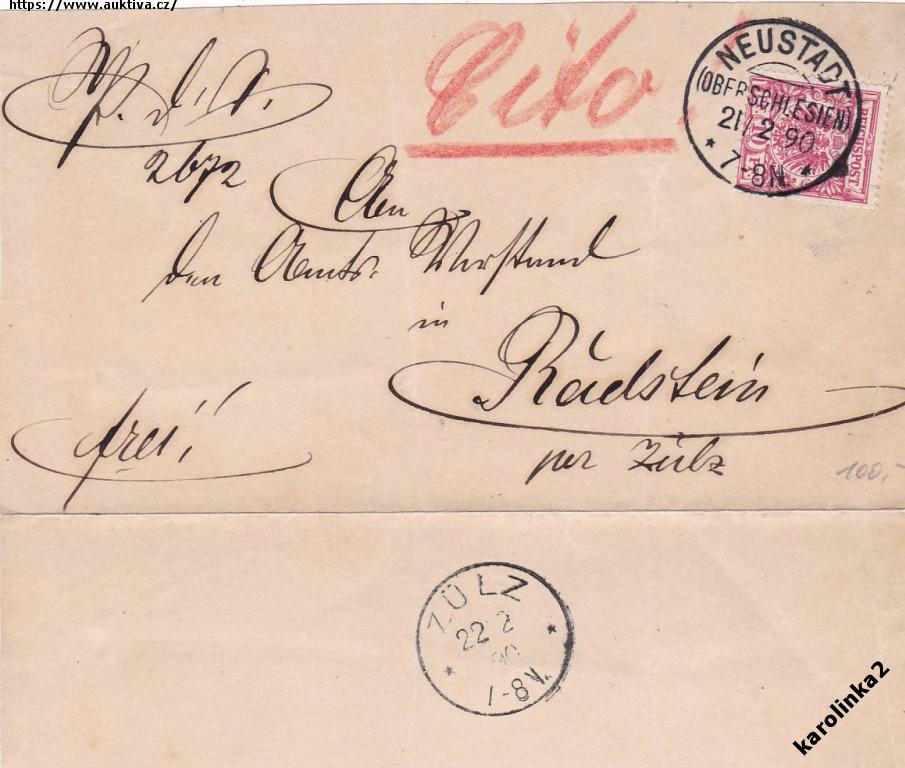 https://www.auktiva.cz/
P. d. A.
2672
Cito!
NEUSTADT
(OBERSCHLESIEN)
21/2 90
* 7-8N. *
REICHSPOST
10
An
den Amts-Vorstand
in
Radstein
per Zülz
frei!
100,-
ZÜLZ
22 2
90
* 7-8V. *
karolinka2